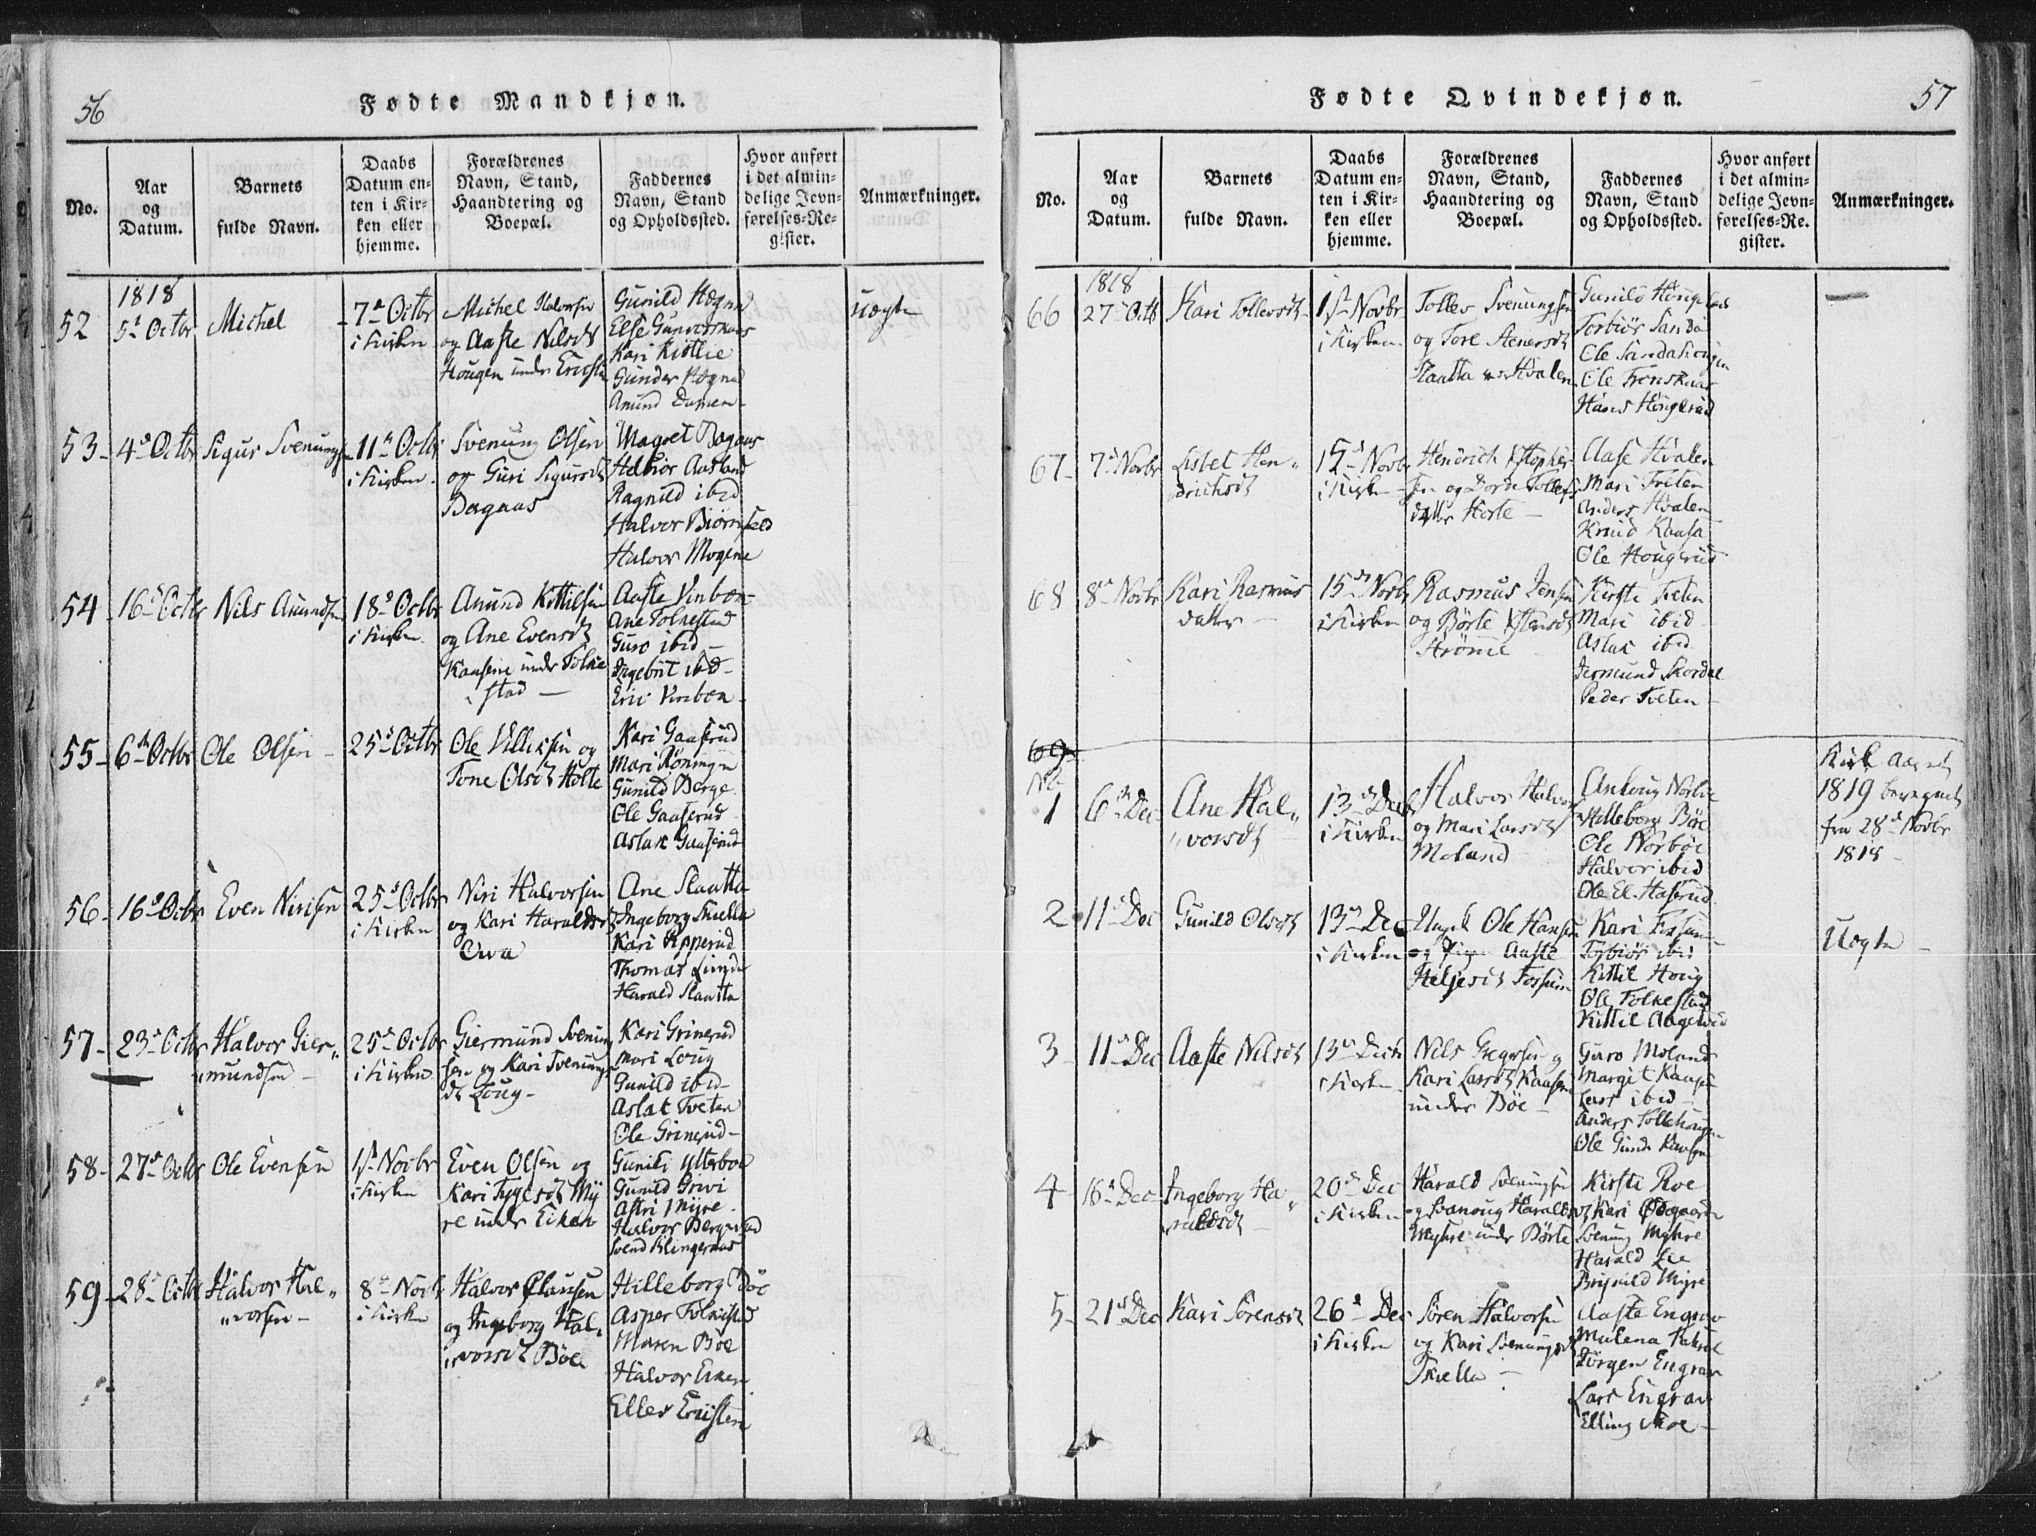 56
Fødte Mandkjøn.
No.
Aar
og
Datum.
Barnets
fulde Navn.
Daabs
Datum en-
ten i Kir-
ken eller
hjemme.
Forældrenes
Navn, Stand,
Haandtering og
Boepæl.
Faddernes
Navn, Stand
og Opholdssted.
Hvor anført
i det almin-
delige Jevn-
førelses-Re-
gister.
Anmærkninger.
1818
52
5 Octbr
Michel
7 Octbr
i Kirken
Michel Halvorsen
og Aaste Nilsdt
Hougen under
Gunild Hegna
Else
Kari
Gunder Hegna
Anund
Uægte
53-
4 Octbr
Sigur Svenungsen
11 Octbr
i Kirken
Svenung Olsen
og Guri Sigursdt
Bagaas
Magret Bagaas
Helbiør Aasland
Ragnild ibid
Halvor Biørnfeld
Halvor Mogene
54
16 Octbr
Nils Anundsen
18 Octbr
i Kirken
Anund Kittilsen
og Ane Evensdt
Kaasene under Folke
stad
Aaste Vinboe
Ane Folkestad
Guro ibid
Ingebrit ibid
Eric Vinboe
55-
6 Octbr
Ole Olsen
25 Octbr
Ole
og
Tone Olsdt Holte
Kari Gaaserud
Mari Røningen
Gunild Berge
Ole Gaaserud
Aslak Gaaserud
56-
16 Octbr
Even Nirisen
25 Octbr
i Kirken
Niri Halvorsen
og Kari Haraldsdt
Ane Slaatta
Ingeborg Skielle
Kari Epperud
Thomas Lunde
Harald Slaatta
57-
23 Octbr
Halvor Gier-
mundsen
25 Octbr
i Kirken
Giermund Svenung
sen og Kari Svenungs
dt Loug-
Kari Grinerud
Mari Loug
Gunild ibid
Aslak Tveten
Ole Grinerud-
58-
27 Octbr
Ole Evensen
1st Novbr
i Kirken
Even Olsen og
Kari Tygesdt My
re under Eikan
Gunild Ytterboe
Gunild Grivi
Astri Myre
Halvor Bergerud
Svend Klingernaas
59-
28 Octbr
Halvor Hal-
vorsen-
8 Novbr
i Kirken
Halvor Clausen
og Ingeborg Hal-
vorsdt Bøe
Hilleborg Bøe
Asper Folkestad
Maren Bøe
Halvor Eiken
Ellev
57
Fødte Qvindekjøn.
No.
Aar
og
Datum.
Barnets
fulde Navn.
Daabs
Datum en-
ten i Kir-
ken eller
hjemme.
Forældrenes
Navn, Stand,
Haandtering og
Boepæl.
Faddernes
Navn, Stand
og Opholdssted.
Hvor anført
i det almin-
delige Jevn-
førelses-Re-
gister.
Anmærkninger.
1818
66
27 Octb
Kari Tollevsdt
1st Novbr
i Kirken
Tollev Svenungsen
og Tore
Slaatta
Gunild Hougerud
Torbiør Sanda
Ole
Ole
Hans Hougerud
67-
7 Novbr
Lisbet Hen-
drichsdt
15 Novbr
i Kirken
Hendrich Christopher
sen og Dorde Tollefs
datter Horte
Aase Hvalen
Mari Tveten
Anders Hvalen
Knud Kaasa
Ole Hougerud
68
8 Novbr
Kari Rasmus
datter
15 Novbr
i Kirken
Rasmus Jensen
og Børte
Strømme
Kirsti Tveten
Mari ibid
Aslak ibid
Jermund Skordal
Peder Tveten
69
No.
1
6 Dec
Ane Hal-
vorsdt
13 Dec
i Kirken
Halvor Halvorsen
og Mari Larsdt
Moland
Anloug Norbøe
Hilleborg Bøe
Ole Norbøe
Halvor ibid
Ole El. Haserud
Kirk Aaret
1819 beregnet
fra 28 Novbr
1818
2
11 Dec
Gunild Olsdt
13 Dec
i Kirken
Ungk Ole Hansen
og Pigen Aaste
Heljesdt Fossum
Kari Fossum
Torbiør ibid
Kittil Houg
Ole Folkestad
Kittil
Uægte
3
11 Dec
Aaste Nilsdt
13
i Kirken
Nils Gregersen og
Kari Larsdt Kaasene
under Bøe
Guro Moland
Margit Kaasen
Lars ibid
Anders
Ole
4
16 Dec
Ingeborg Ha-
raldsdt
20 Dec
i Kirken
Harald Svenungsen
og
Haraldsdt
Myhre under Børte
Kirsti Roe
Kari Ødegaarden
Svenung Myhre
Harald Lie
Brynild Myre
5-
21 Dec
Kari Sørensdt
26 Dec
i Kirken
Søren Halvorsen
og Kari Svenungsdt
Skielle
Aaste Engrav
Malena
Jørgen Engrav
Lars Engrav
Elling Moe